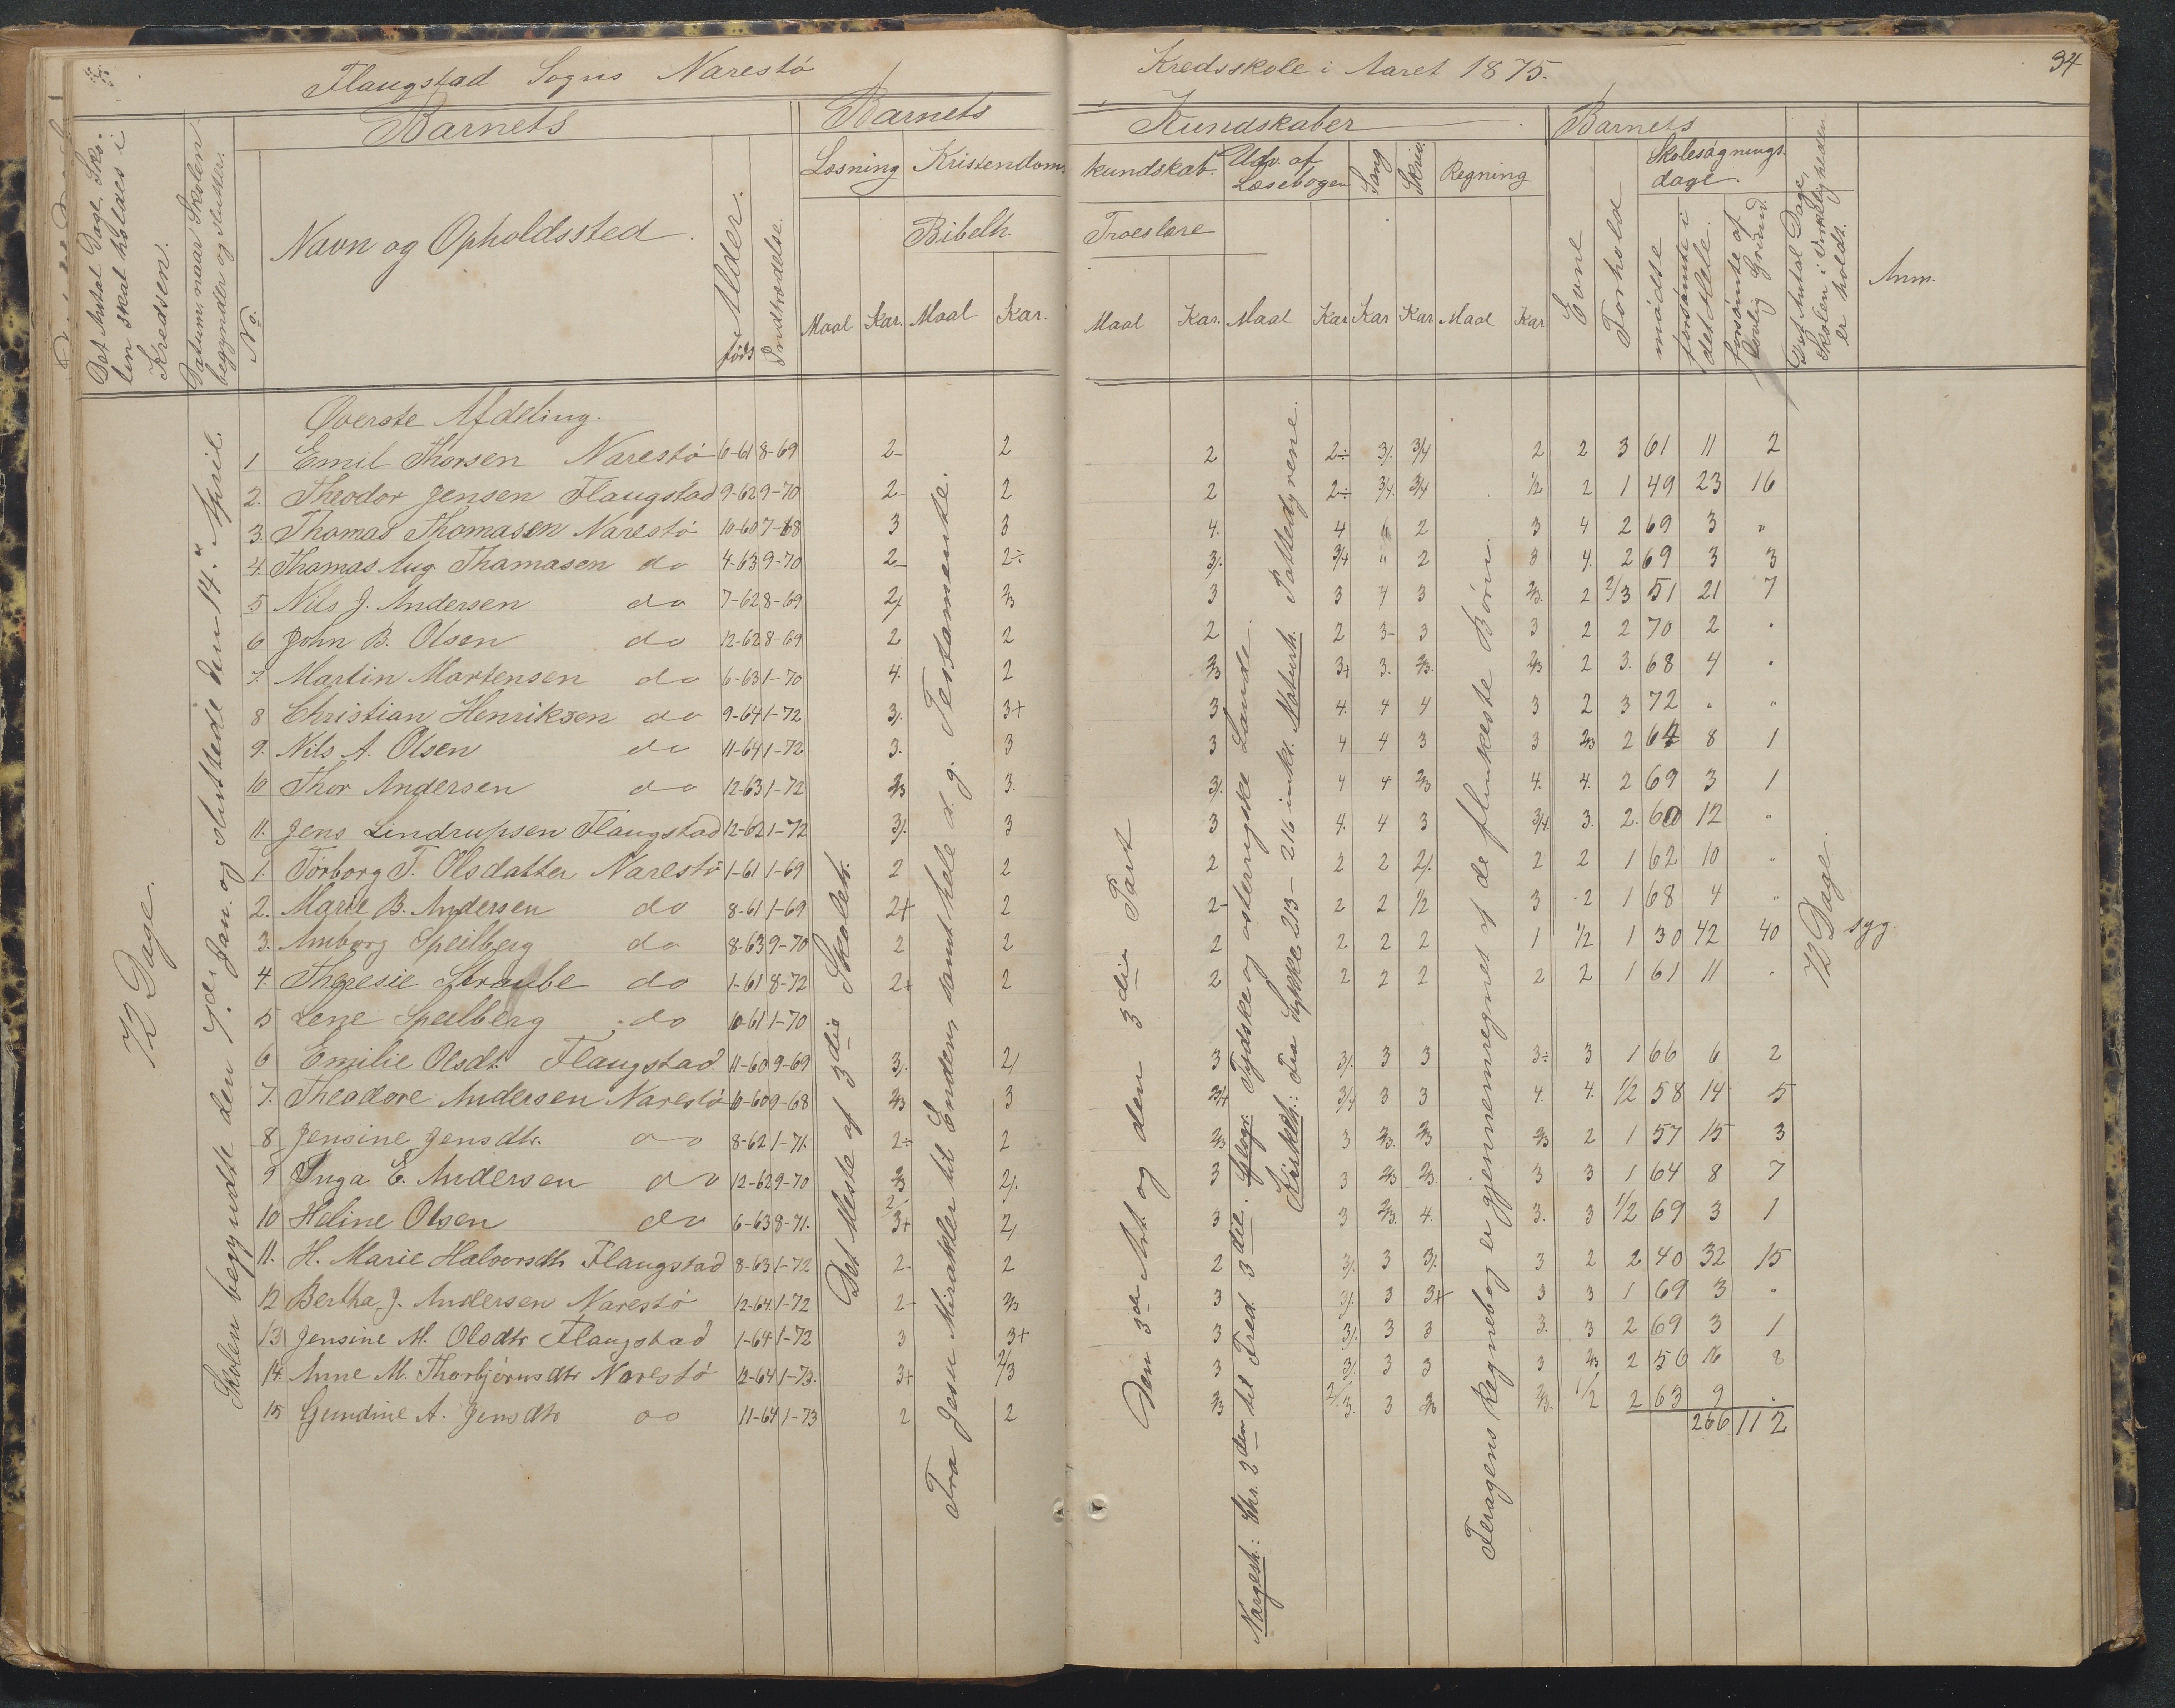 Flaugstad Sogns Narestö Kredsskole i Aaret 1875. 34
Barnets Barnets Kundskaber Barnets
Det Antal Dage, Skolen skal holdes i Kredsen.
Datum, naar Skolen begynder og slutter.
No.
Navn og Opholdssted.
Alder.
föds
Indtrædelse.
Læsning Kristendomskundskab. Udv. af Læsebogen Sang Skriv. Regning
Bibelh. Troeslære
Evne
Forhold
Skolesøgningsdage.
mödte
forsömte i det Hele.
forsömte af lovlig Grund.
Det Antal Dage, Skolen i Virkeligheden er holdt.
Anm.
Maal Kar. Maal Kar. Maal Kar. Maal Kar Kar Kar Maal Kar
72 Dage.
Skolen begyndte den 7de Jan. og sluttede den 14. April.
Det Meste af 3die Skoletr.
Fra Jesu Mirakler til Enden, samt hele d. g. Testamente.
Den 3die Art. og den 3die Part
Norgesh.: Chr. 2den til Fred. 3die. Geogr. Tydske og østerrigske Lande.
Kirkeh.: Fra Stykke 213–216 inkl. Naturh. Pattedyrene.
Feragens Regnebog er gjennemregnet af de flinkeste Børn.
72 Dage.
Överste Afdeling.
1 Emil Thorsen Narestö 6-61 8-69 2- 2 2 2÷ 3/. 3/4 2 2 3 61 11 2
2. Theodor Jensen Flaugstad 9-62 9-70 2- 2 2 2÷ 3/4. 3/4 1/2 2 1 49 23 16
3. Thomas Thomasen Narestö 10-60 7-68 3 3 4. 4 6 2 3 4 2 69 3 "
4. Thomas Aug Thomasen do 4-63 9-70 2- 2÷ 3/. 3/4 " 2 3 4. 2 69 3 3
5 Nils J. Andersen do 7-62 8-69 2/ 2/3 3 3 4 3 2/3. 2 2/3 51 21 7
6 John B. Olsen do 12-62 8-69 2 2 2 2 3- 3 3 2 2 70 2 "
7. Martin Mortensen do 6-63 1-70 4. 2 2/3 3+ 3. 2/3. 2/3 2 3. 68 4 "
8 Christian Henriksen do 9-64 1-72 3/. 3+ 3 4. 4 4 3 2 3 72 " "
9. Nils A. Olsen do 11-64 1-72 3. 3 3 4 4 3 3 2/3 2 64 8 1
10 Thor Andersen do 12-63 1-72 2/3 3. 3/. 4 4 2/3 4. 4. 2 69 3 1
11. Jens Lindrupsen Flaugstad 12-62 1-72 3/. 3 3 4. 4 3 3/4. 3. 2. 60 12 "
1. Torborg T. Olsdatter Narestö 1-61 1-69 2 2 2 2 2 2/. 2 2 1 62 10 "
2. Marie B. Andersen do 8-61 1-69 2+ 2 2- 2 2 1/2 3 2 1 68 4 "
3. Amborg Speilberg do 8-63 9-70 2 2 2 2 2 2 1 1/2 1 30 42 40 syg.
4. Theresie Straube do 1-61 8-72 2+ 2 2 2 2 2 2 2 1 61 11 "
5 Lene Speilberg do 10-61 1-70
6 Emilie Olsdt. Flaugstad. 11-60 9-69 3/. 2/ 3 3/. 3 3 3÷ 3 1 66 6 2
7. Theodore Andersen Narestö 10-60 9-68 2/3 3 3/4 3/4 3 3 4. 4. 1/2 58 14 5
8 Jensine Jensdtr. do 8-62 1-71. 2÷ 2 2/3 3 2/3. 2/3 2/3 2 1 57 15 3
9 Inga E. Andersen do 12-62 9-70 2/3 2/. 3 3 2/3 2/3 3 3 1 64 8 7
10 Heline Olsen do 6-63 8-71. 3+ 2/ 3 3 2/3. 4. 3. 3 1/2 69 3 1
11. H. Marie Halvorsdtr Flaugstad 8-63 1-72 2- 2 2 3/. 3 3/. 3 2 2 40 32 15
12 Bertha J. Andersen Narestö 12-64. 1-72 2- 2/3 3 3/. 3 3+ 3 3 1 69 3 "
13 Jensine M. Olsdtr Flaugstad 1-64 1-72 3 3+ 3 3/. 3 3 3. 3 2 69 3 1
14. Anne M. Thorbjörnsdtr Narestö 12-64 1-73. 3+ 2/3 3 3/. 3 3 3 2/3 2 56 16 8
15 Gundine A. Jensdtr do 11-64 1-73 2 2 2/3 2/3. 3 2/3 2/3. 1/2 2 63 9 "
266 112